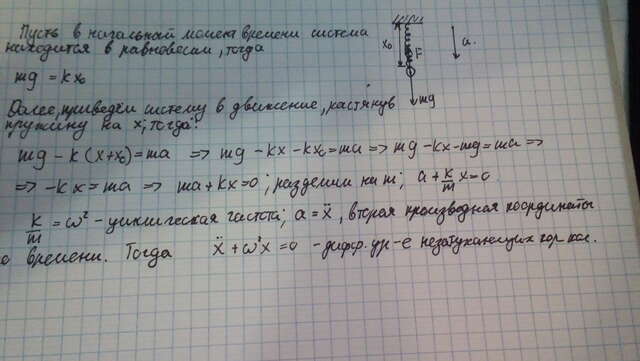 Пусть в начальный момент времени система
находится в равновесии, тогда
mg = kx₀
Далее приводим систему в движение, растянув
пружину на x, тогда:
mg - k(x+x₀)=ma => mg - kx - kx₀=ma => mg - kx - mg = ma =>
=> -kx = ma => ma + kx = 0; разделим на m; a + k/m x = 0.
k/m = ω² - циклическая частота; a = ẍ, вторая производная координаты
по времени. Тогда ẍ + ω²x = 0 - дифф. ур-е незатухающих гар. кол.
x₀
F
a
mg